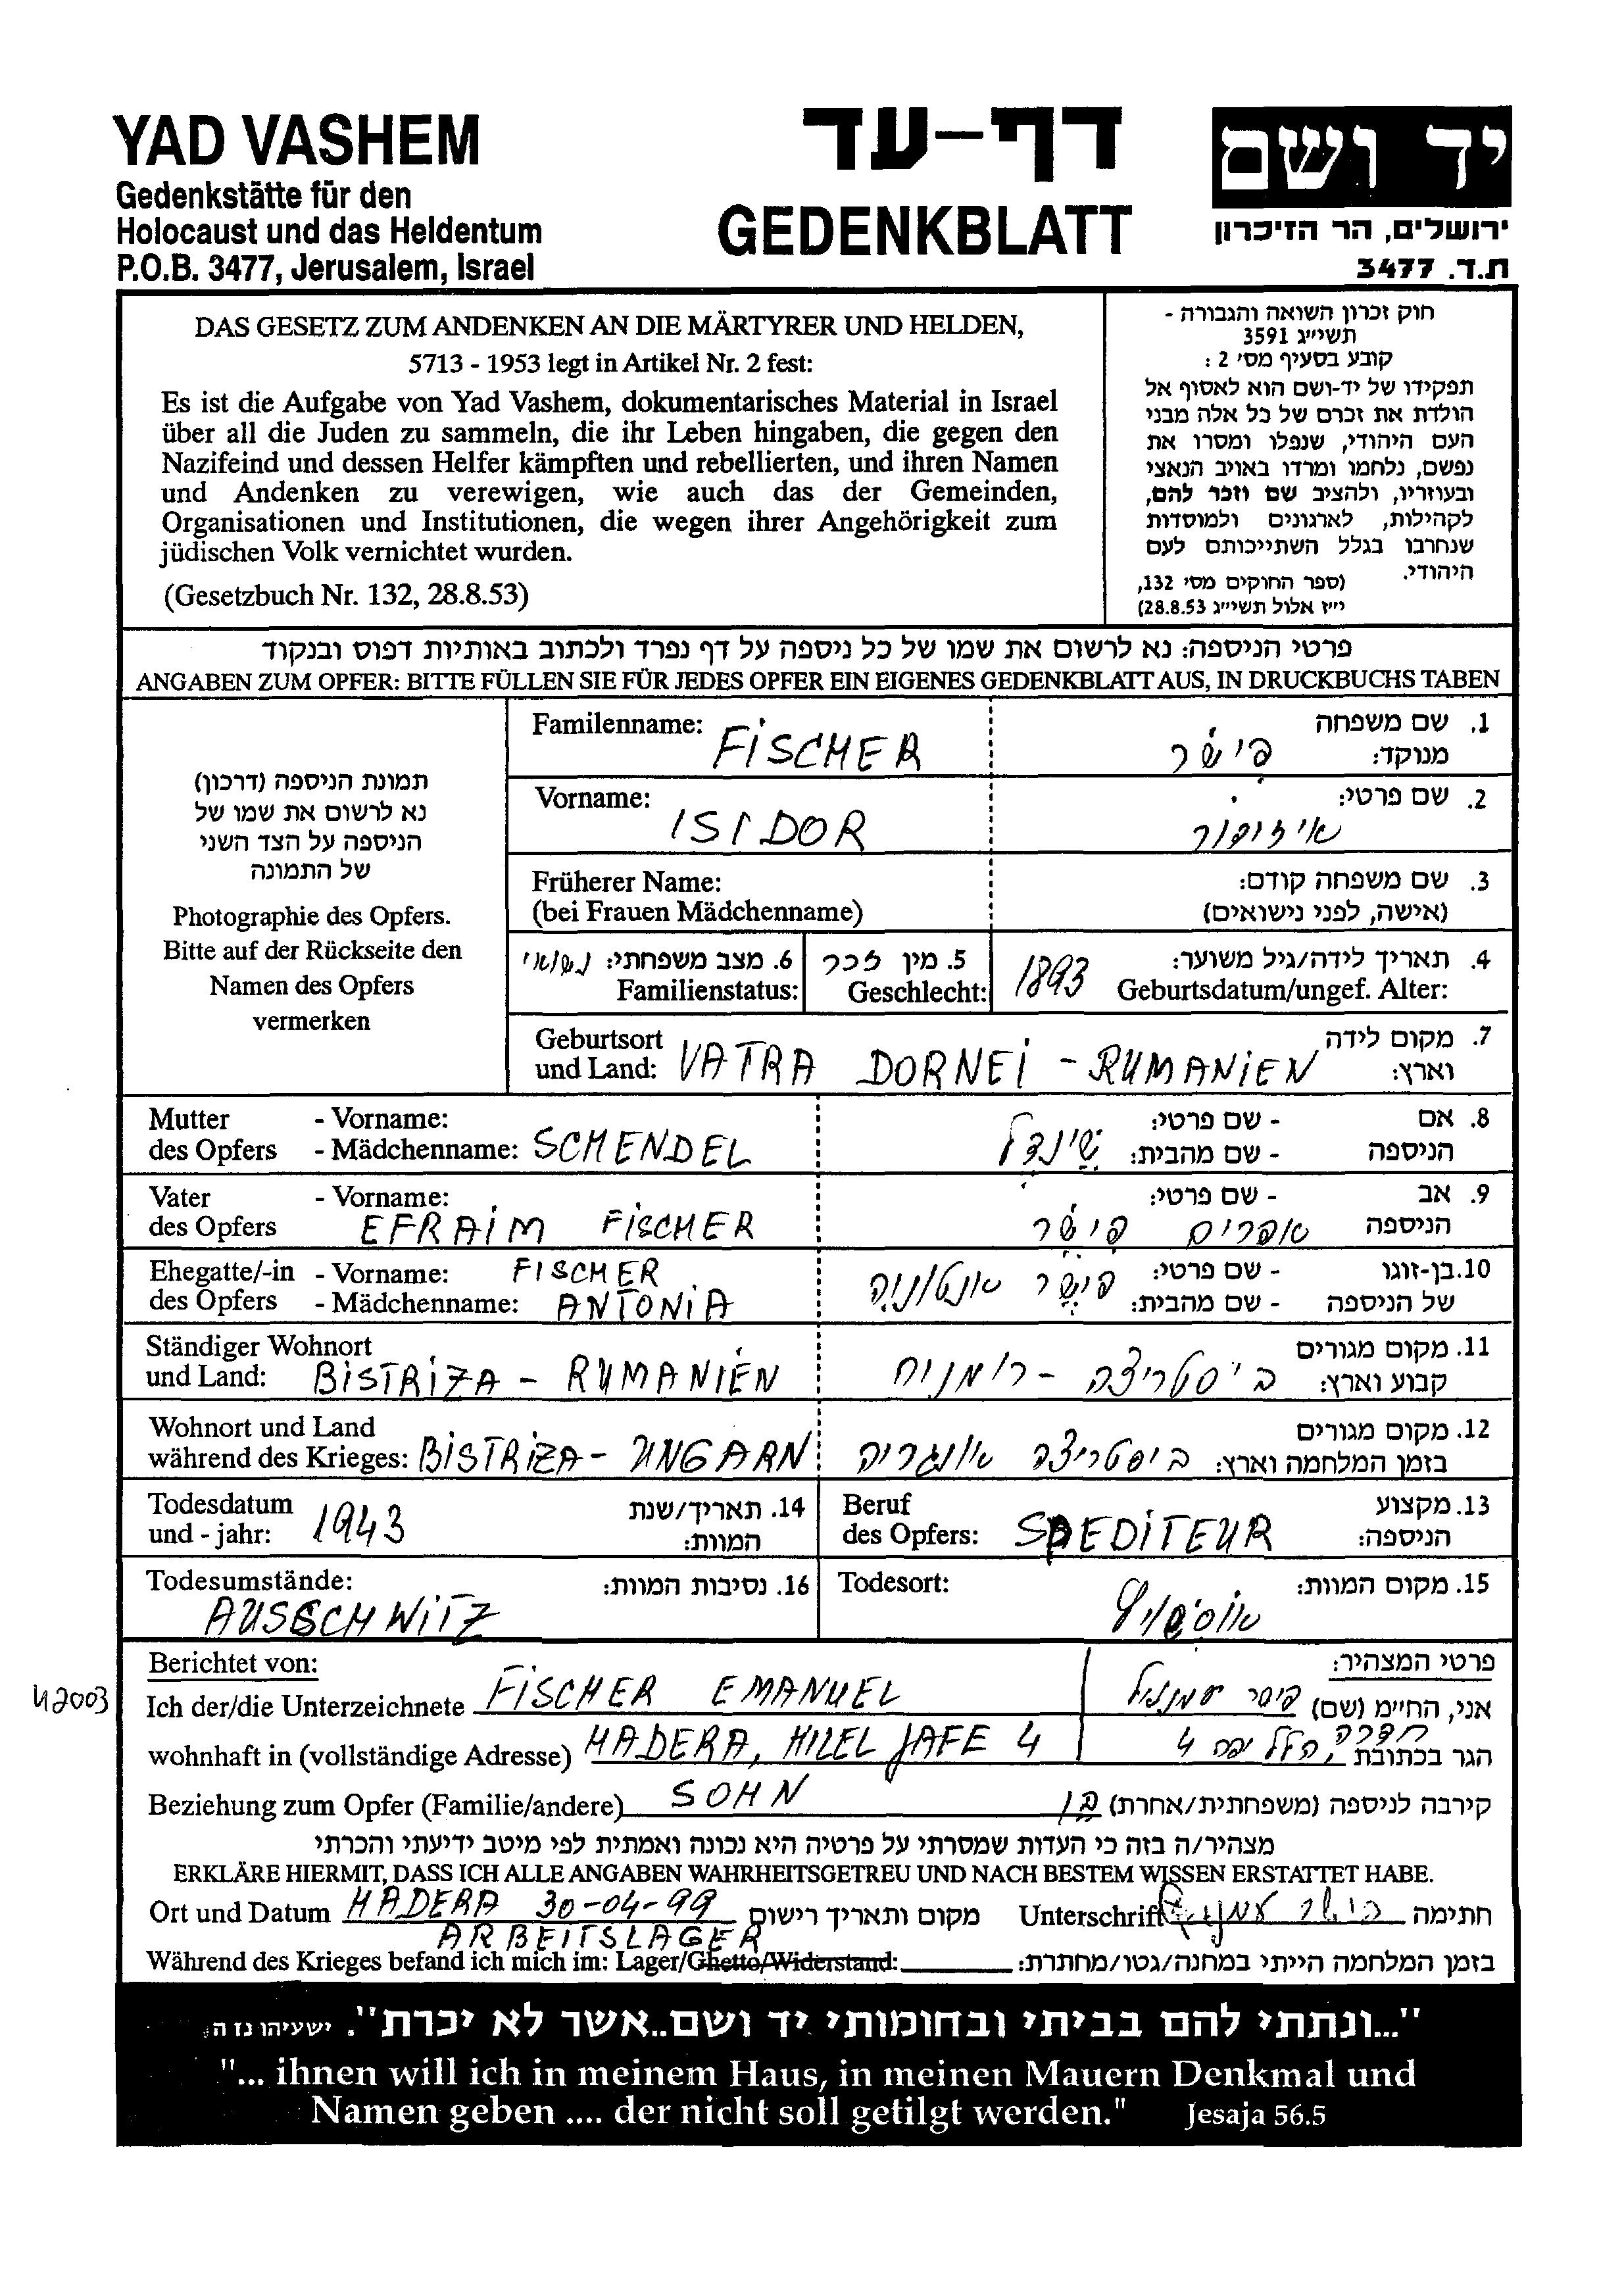 YAD VASHEM
Gedenkstätte für den
Holocaust und das Heldentum
P.O.B. 3477, Jerusalem, Israel
דף-עד
GEDENKBLATT
יד ושם
ירושלים, הר הזיכרון
ת.ד. 3477
DAS GESETZ ZUM ANDENKEN AN DIE MÄRTYRER UND HELDEN,
5713 - 1953 legt in Artikel Nr. 2 fest:
Es ist die Aufgabe von Yad Vashem, dokumentarisches Material in Israel
über all die Juden zu sammeln, die ihr Leben hingaben, die gegen den
Nazifeind und dessen Helfer kämpften und rebellierten, und ihren Namen
und Andenken zu verewigen, wie auch das der Gemeinden,
Organisationen und Institutionen, die wegen ihrer Angehörigkeit zum
jüdischen Volk vernichtet wurden.
(Gesetzbuch Nr. 132, 28.8.53)
חוק זכרון השואה והגבורה -
תשי״ג 3591
קובע בסעיף מס׳ 2 :
תפקידו של יד-ושם הוא לאסוף אל
הולדת את זכרם של כל אלה מבני
העם היהודי, שנפלו ומסרו את
נפשם, נלחמו ומרדו באויב הנאצי
ובעוזריו, ולהציב שם וזכר להם,
לקהילות, לארגונים ולמוסדות
שנחרבו בגלל השתייכותם לעם
היהודי. (ספר החוקים מס׳ 132,
י״ז אלול תשי״ג 28.8.53)
פרטי הניספה: נא לרשום את שמו של כל ניספה על דף נפרד ולכתוב באותיות דפוס ובנקוד
ANGABEN ZUM OPFER: BITTE FÜLLEN SIE FÜR JEDES OPFER EIN EIGENES GEDENKBLATT AUS, IN DRUCKBUCHS TABEN
תמונת הניספה (דרכון)
נא לרשום את שמו של
הניספה על הצד השני
של התמונה
Photographie des Opfers.
Bitte auf der Rückseite den
Namen des Opfers
vermerken
Familenname: FISCHER
1. שם משפחה מנוקד: פישר
Vorname: ISIDOR
2. שם פרטי: איזידור
Früherer Name:
(bei Frauen Mädchenname)
3. שם משפחה קודם:
(אישה, לפני נישואים)
6. מצב משפחתי: נשואי
Familienstatus:
5. מין זכר
Geschlecht:
4. תאריך לידה/גיל משוער:
Geburtsdatum/ungef. Alter: 1893
Geburtsort
und Land: VATRA DORNEI - RUMANIEN
7. מקום לידה
וארץ:
Mutter - Vorname:
des Opfers - Mädchenname: SCHENDEL
8. אם - שם פרטי:
הניספה - שם מהבית: שינדל
Vater - Vorname:
des Opfers EFRAIM FISCHER
9. אב - שם פרטי:
הניספה אפרים פישר
Ehegatte/-in - Vorname: FISCHER
des Opfers - Mädchenname: ANTONIA
10. בן-זוגו - שם פרטי:
של הניספה - שם מהבית: פישר אנטוניה
Ständiger Wohnort
und Land: BISTRIZA - RUMANIEN
11. מקום מגורים
קבוע וארץ: ביסטריצה - רומניה
Wohnort und Land
während des Krieges: BISTRIZA - UNGARN
12. מקום מגורים
בזמן המלחמה וארץ: ביסטריצה אונגריה
Todesdatum
und - jahr: 1943
14. תאריך/שנת
המוות:
Beruf
des Opfers: SPEDITEUR
13. מקצוע
הניספה:
Todesumstände:
AUSSCHWITZ
16. נסיבות המוות:
Todesort:
15. מקום המוות:
אוסשויץ
Berichtet von:
פרטי המצהיר:
Ich der/die Unterzeichnete FISCHER EMANUEL
אני, החיימ (שם) פישר עמנואל
wohnhaft in (vollständige Adresse) HADERA, HILEL JAFE 4
הגר בכתובת חדרה, הלל יפה 4
42003
Beziehung zum Opfer (Familie/andere) SOHN
קירבה לניספה (משפחתית/אחרת) בן
מצהיר/ה בזה כי העדות שמסרתי על פרטיה היא נכונה ואמתית לפי מיטב ידיעתי והכרתי
ERKLÄRE HIERMIT, DASS ICH ALLE ANGABEN WAHRHEITSGETREU UND NACH BESTEM WISSEN ERSTATTET HABE.
Ort und Datum HADERA 30-04-99 מקום ותאריך רישום
Unterschrift פישר עמנואל חתימה
ARBEITSLAGER
Während des Krieges befand ich mich im: Lager/Ghetto/Widerstand:
בזמן המלחמה הייתי במחנה/גטו/מחתרת:
"...ונתתי להם בביתי ובחומותי יד ושם..אשר לא יכרת". ישעיהו נז ה
"... ihnen will ich in meinem Haus, in meinen Mauern Denkmal und
Namen geben .... der nicht soll getilgt werden." Jesaja 56.5